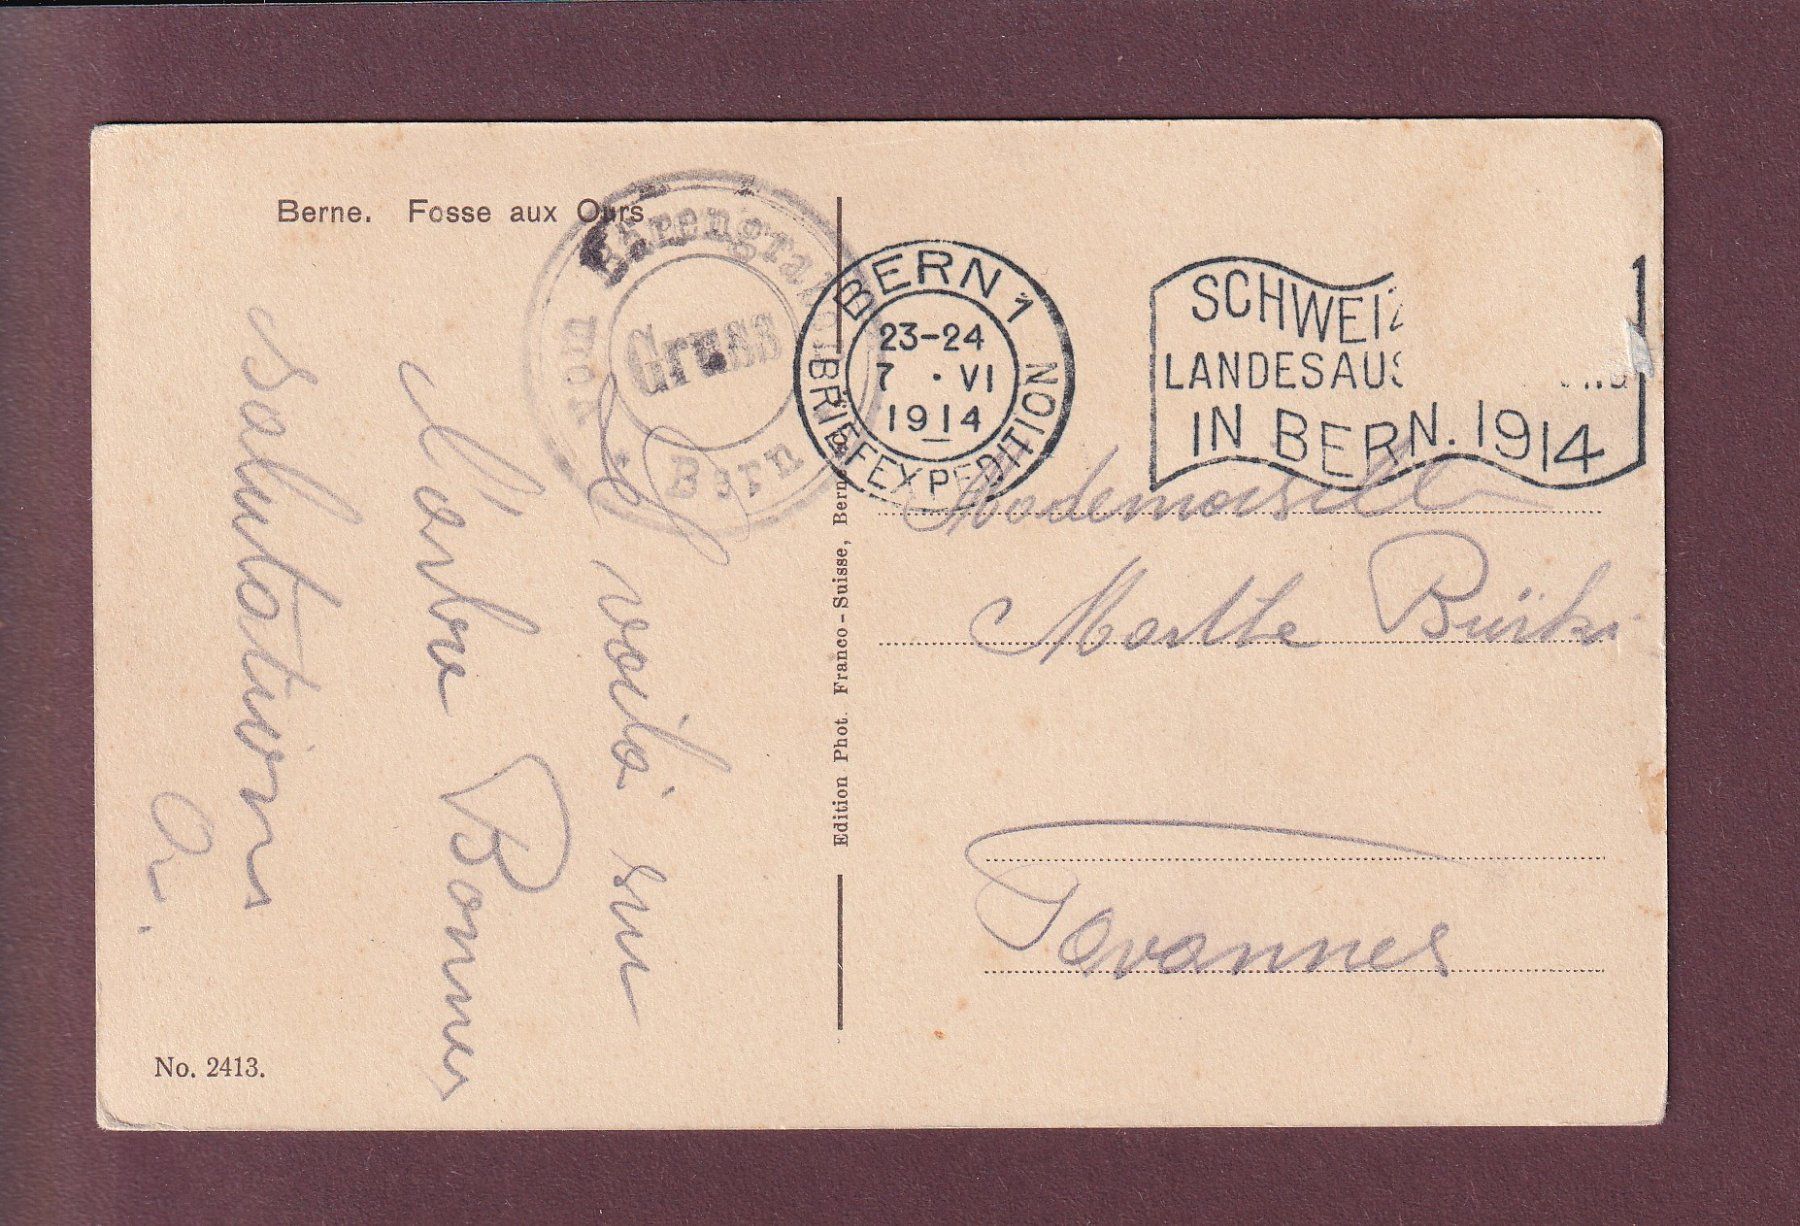 Berne. Fosse aux Ours
Gruss
vom Bärengraben
Bern
BERN 1
23-24
7 · VI
1914
BRIEFEXPEDITION
SCHWEIZ
LANDESAUS
IN BERN. 1914
voilà sur
l'arbre
Bonnes
salutations
Edition Phot. Franco-Suisse, Berne
Mademoiselle
Marthe Bürki
Tavannes
No. 2413.